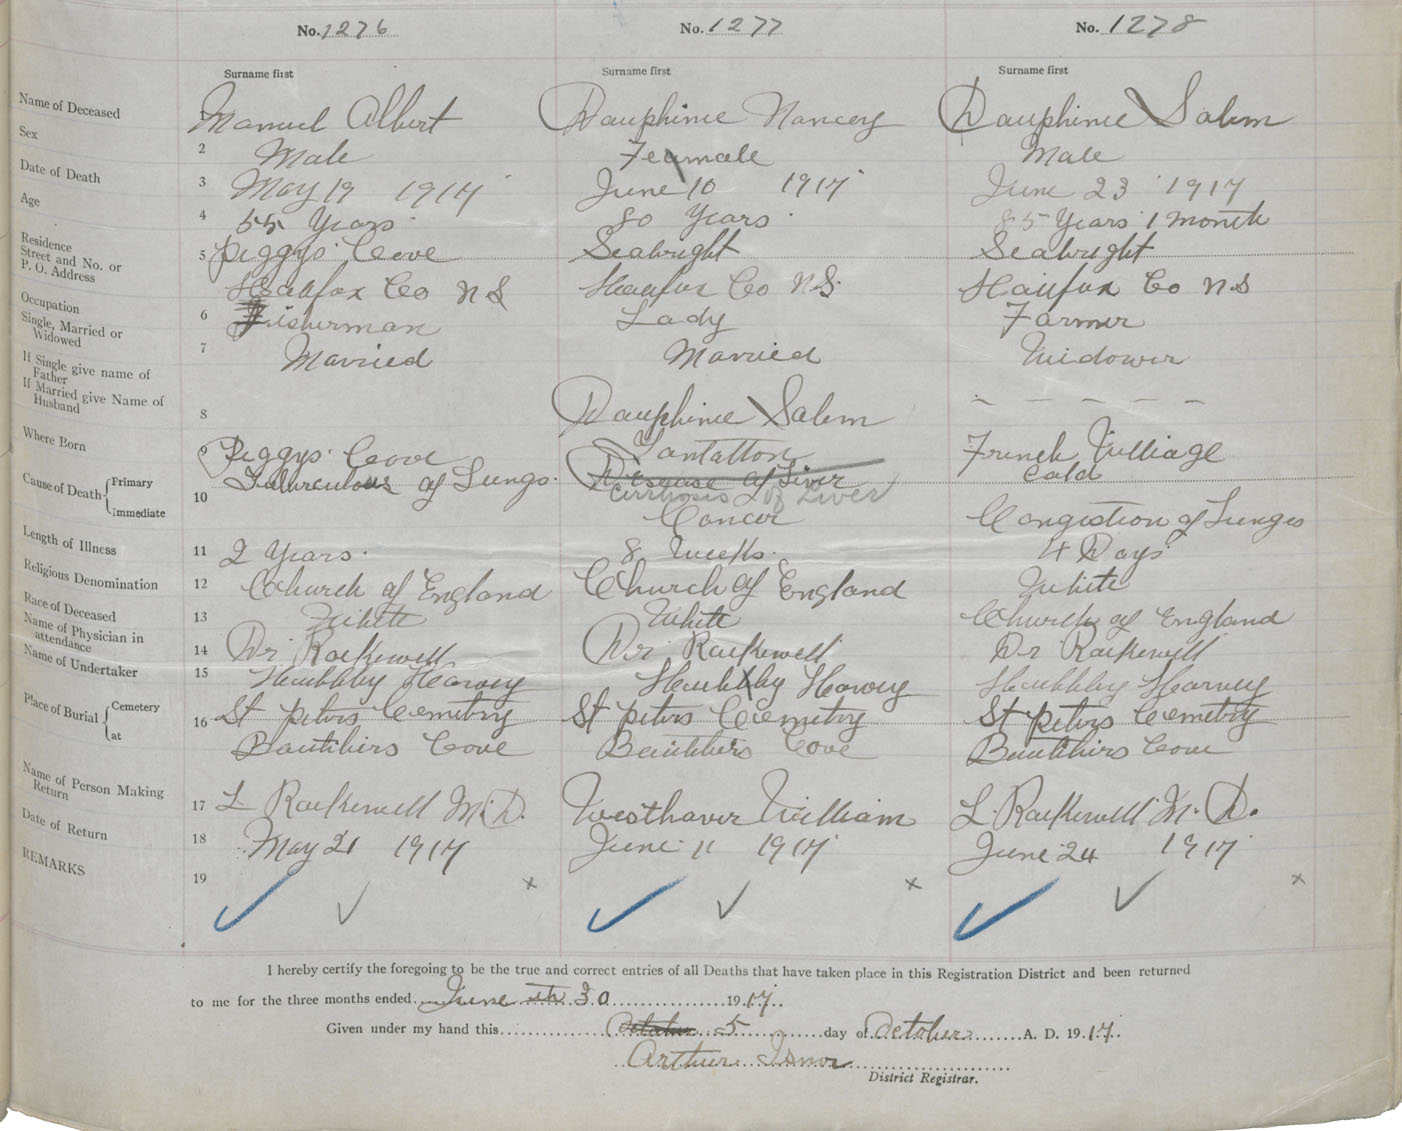 No. 1276
No. 1277
No. 1278
Surname first
Surname first
Surname first
Name of Deceased 1 Manuel Albert Dauphinie Nancey Dauphinie Salem
Sex 2 Male Female Male
Date of Death 3 May 19 1917 June 10 1917 June 23 1917
Age 4 55 Years 80 Years 85 Years 1 month
Residence Street and No. or P. O. Address 5 Peggys Cove Seabright Seabright
Halifax Co N S Halifax Co N.S. Halifax Co N S
Occupation 6 Fisherman Lady Farmer
Single, Married or Widowed 7 Married Married Widower
If Single give name of Father
If Married give Name of Husband 8 Dauphinie Salem – – – – –
Where Born 9 Peggys Cove Tantallon French Villiage
Cause of Death Primary 10 Tuberculous of Lungs. Disease of Liver Cold
Cirrhosis of Liver
Immediate Cancer Congestion of Lunges
Length of Illness 11 2 Years. 8 Weeks. 4 Days
Religious Denomination 12 Church of England Church of England White
Race of Deceased 13 White White Church of England
Name of Physician in attendance 14 Dr Rockewell Dr Rockewell Dr Rockewell
Name of Undertaker 15 Hubbley Harvey Hubbley Harvey Hubbley Harvey
Place of Burial Cemetery 16 St peters Cemetry St peters Cemetry St peters Cemetry
at Boutiliers Cove Boutiliers Cove Boutiliers Cove
Name of Person Making Return 17 L Rockewell M.D. Westhaver William L Rockewell M.D.
Date of Return 18 May 21 1917 June 11 1917 June 24 1917
REMARKS 19
x x x
I hereby certify the foregoing to be the true and correct entries of all Deaths that have taken place in this Registration District and been returned
to me for the three months ended June th 30 1917.
Given under my hand this October 5 day of October A. D. 1917.
Arthur Isnor
District Registrar.